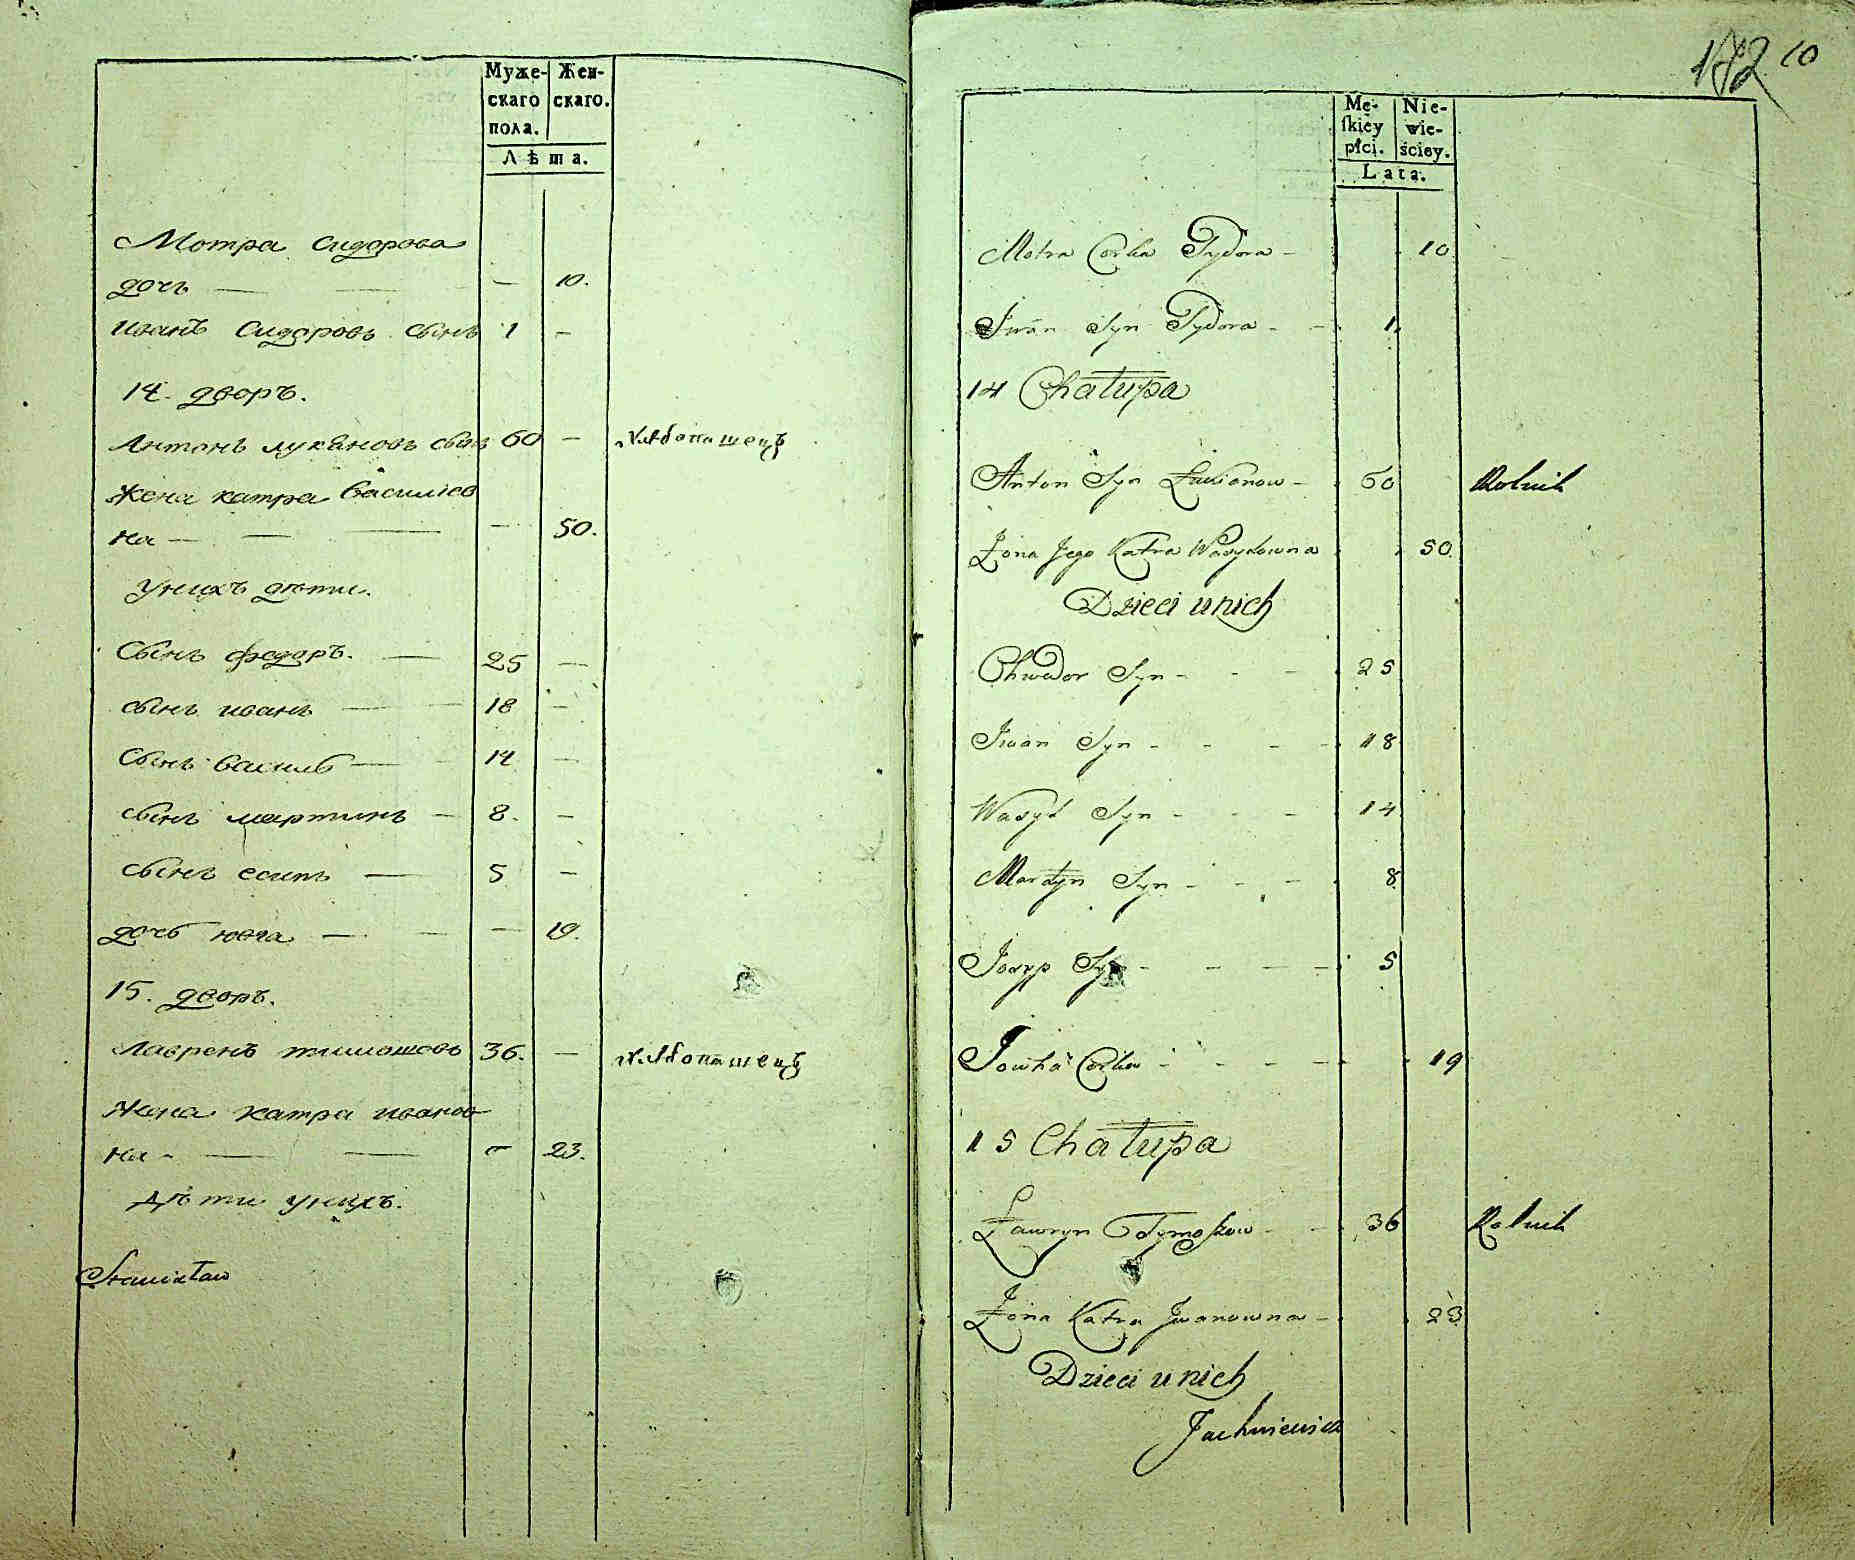 Муже- Жен-
скаго скаго.
пола.
Лѣта.
Мотра Сидорова
дочь — — — 10.
Иванъ Сидоровъ сынъ 1 —
14. дворъ.
Антонъ лукяновъ сынъ 60 — хлѣбопашецъ
Жена катра василiев
на — — — — 50.
Унихъ дѣти.
Сынъ федоръ. — 25 —
сынъ иванъ — — 18 —
Сынъ василь — 14 —
сынъ мартинъ — 8. —
сынъ есипъ — 5 —
дочь югга — — — 19.
15. дворъ.
Лавренъ тимошовъ 36. — хлѣбопашецъ
Жена катра иванов
на — — — — 23.
Дѣти унихъ.
Stanisław
182 10
Mę- Nie-
ſkiéy wie-
płci. ściey.
Lata.
Motra Corka Sydora — 10
Jwan Syn Sydora - - 1
14 Chałupa
Anton Syn Łukianow - 60 Rolnik
Żona Jego Katra Wasylowna 50.
Dzieci u nich
Chwedor Syn - - - 25
Jwan Syn - - - - 18
Wasyl Syn - - - 14
Martyn Syn - - - 8
Josyp Syn - - - - 5
Jowha Corka - - - - 19
15 Chałupa
Ławryn Tymoſzow - - 36 Rolnik
Żona Katra Jwanowna - 23
Dzieci u nich
Jachniewicz